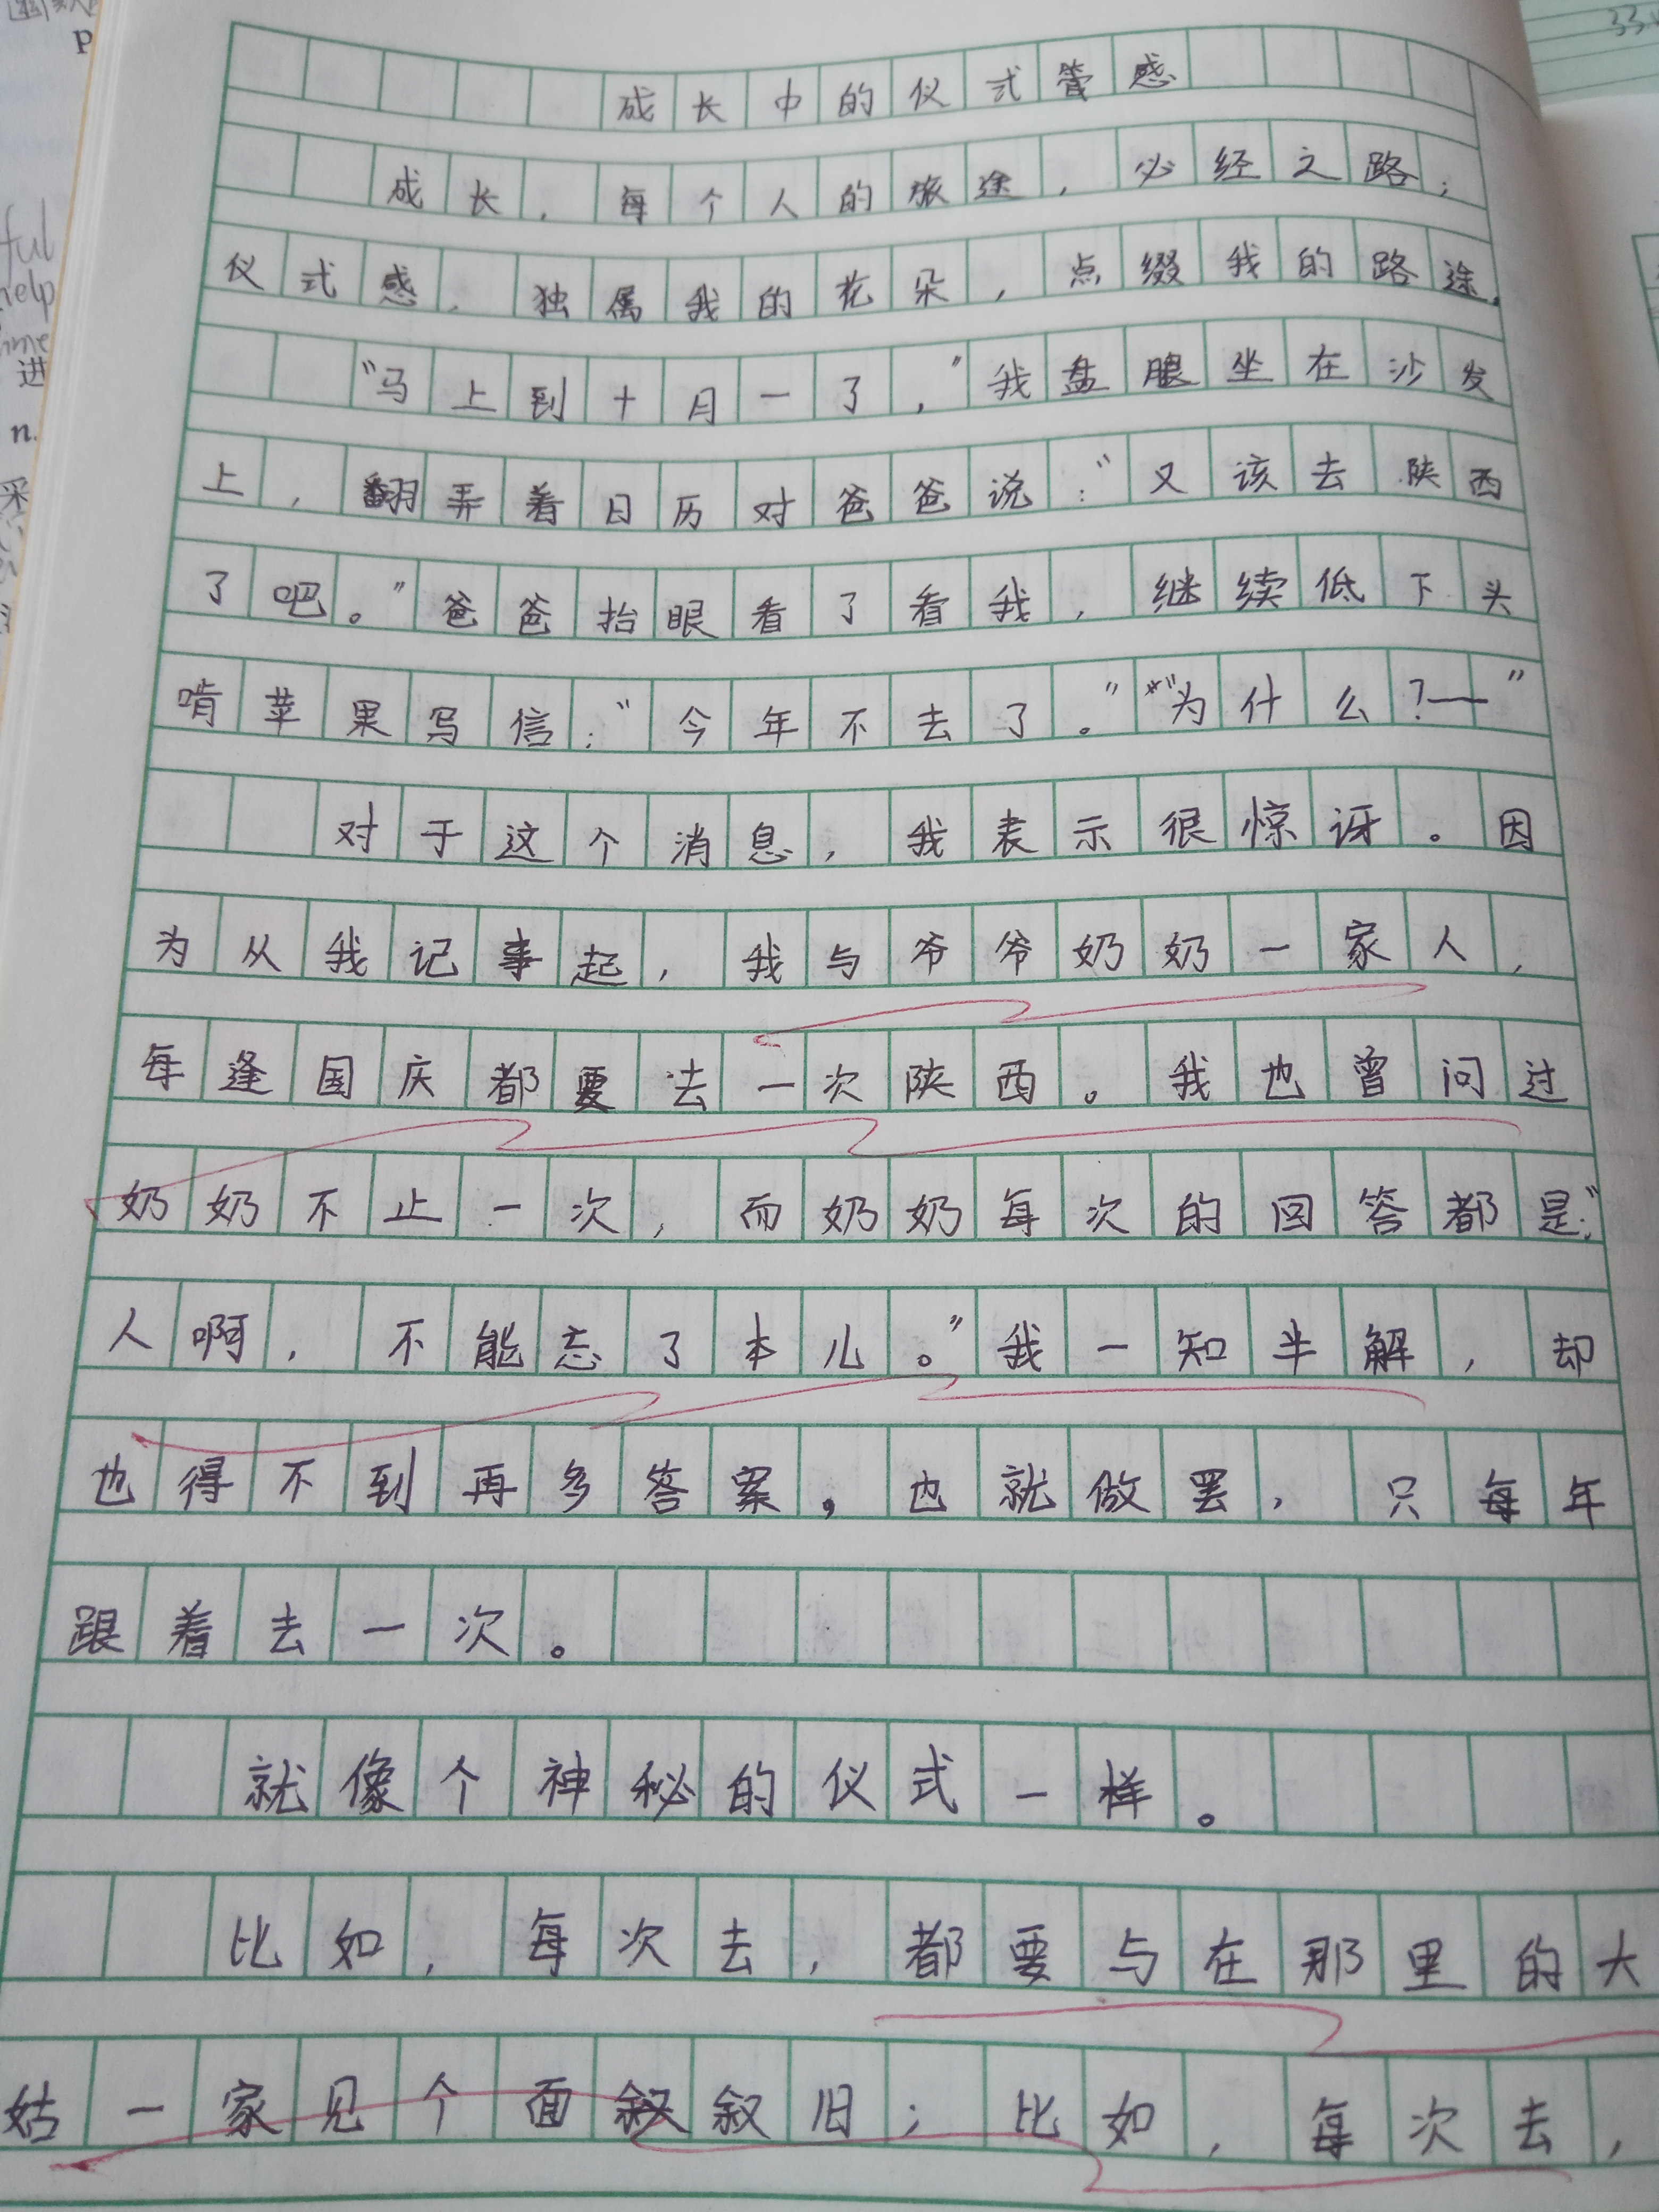 成长中的仪式感
成长，每个人的旅途，必经之路；
仪式感，独属我的花朵，点缀我的路途。
“马上到十月一了，”我盘腿坐在沙发
上，翻弄着日历对爸爸说：“又该去陕西
了吧。”爸爸抬眼看了看我，继续低下头
啃苹果写信：“今年不去了。”“为什么？—”
对于这个消息，我表示很惊讶。因
为从我记事起，我与爷爷奶奶一家人，
每逢国庆都要去一次陕西。我也曾问过
奶奶不止一次，而奶奶每次的回答都是：“
人啊，不能忘了本儿。”我一知半解，却
也得不到再多答案，也就做罢，只每年
跟着去一次。
就像个神秘的仪式一样。
比如，每次去，都要与在那里的大
姑一家见个面叙叙旧；比如，每次去，